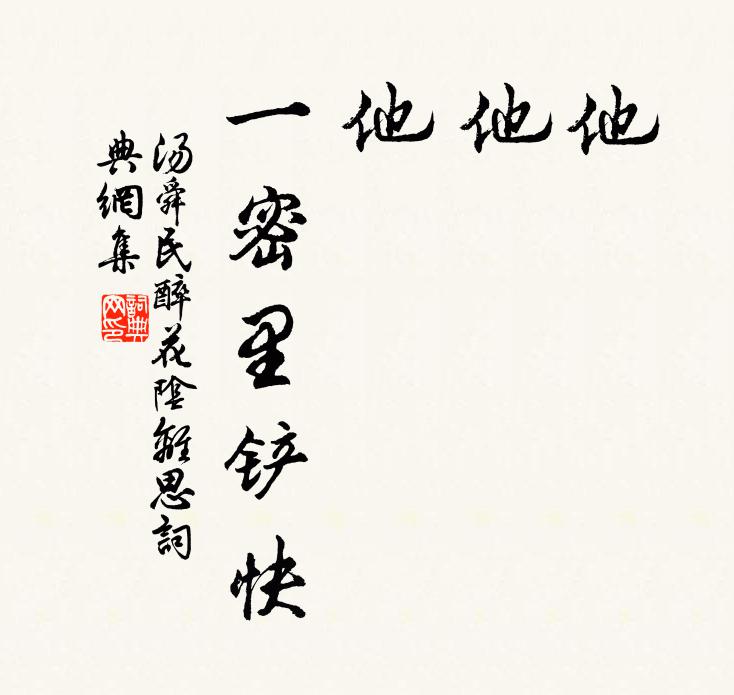 他
他
他
一密里铲快
汤舜民醉花陰離思詞
典網集
詞典
网印